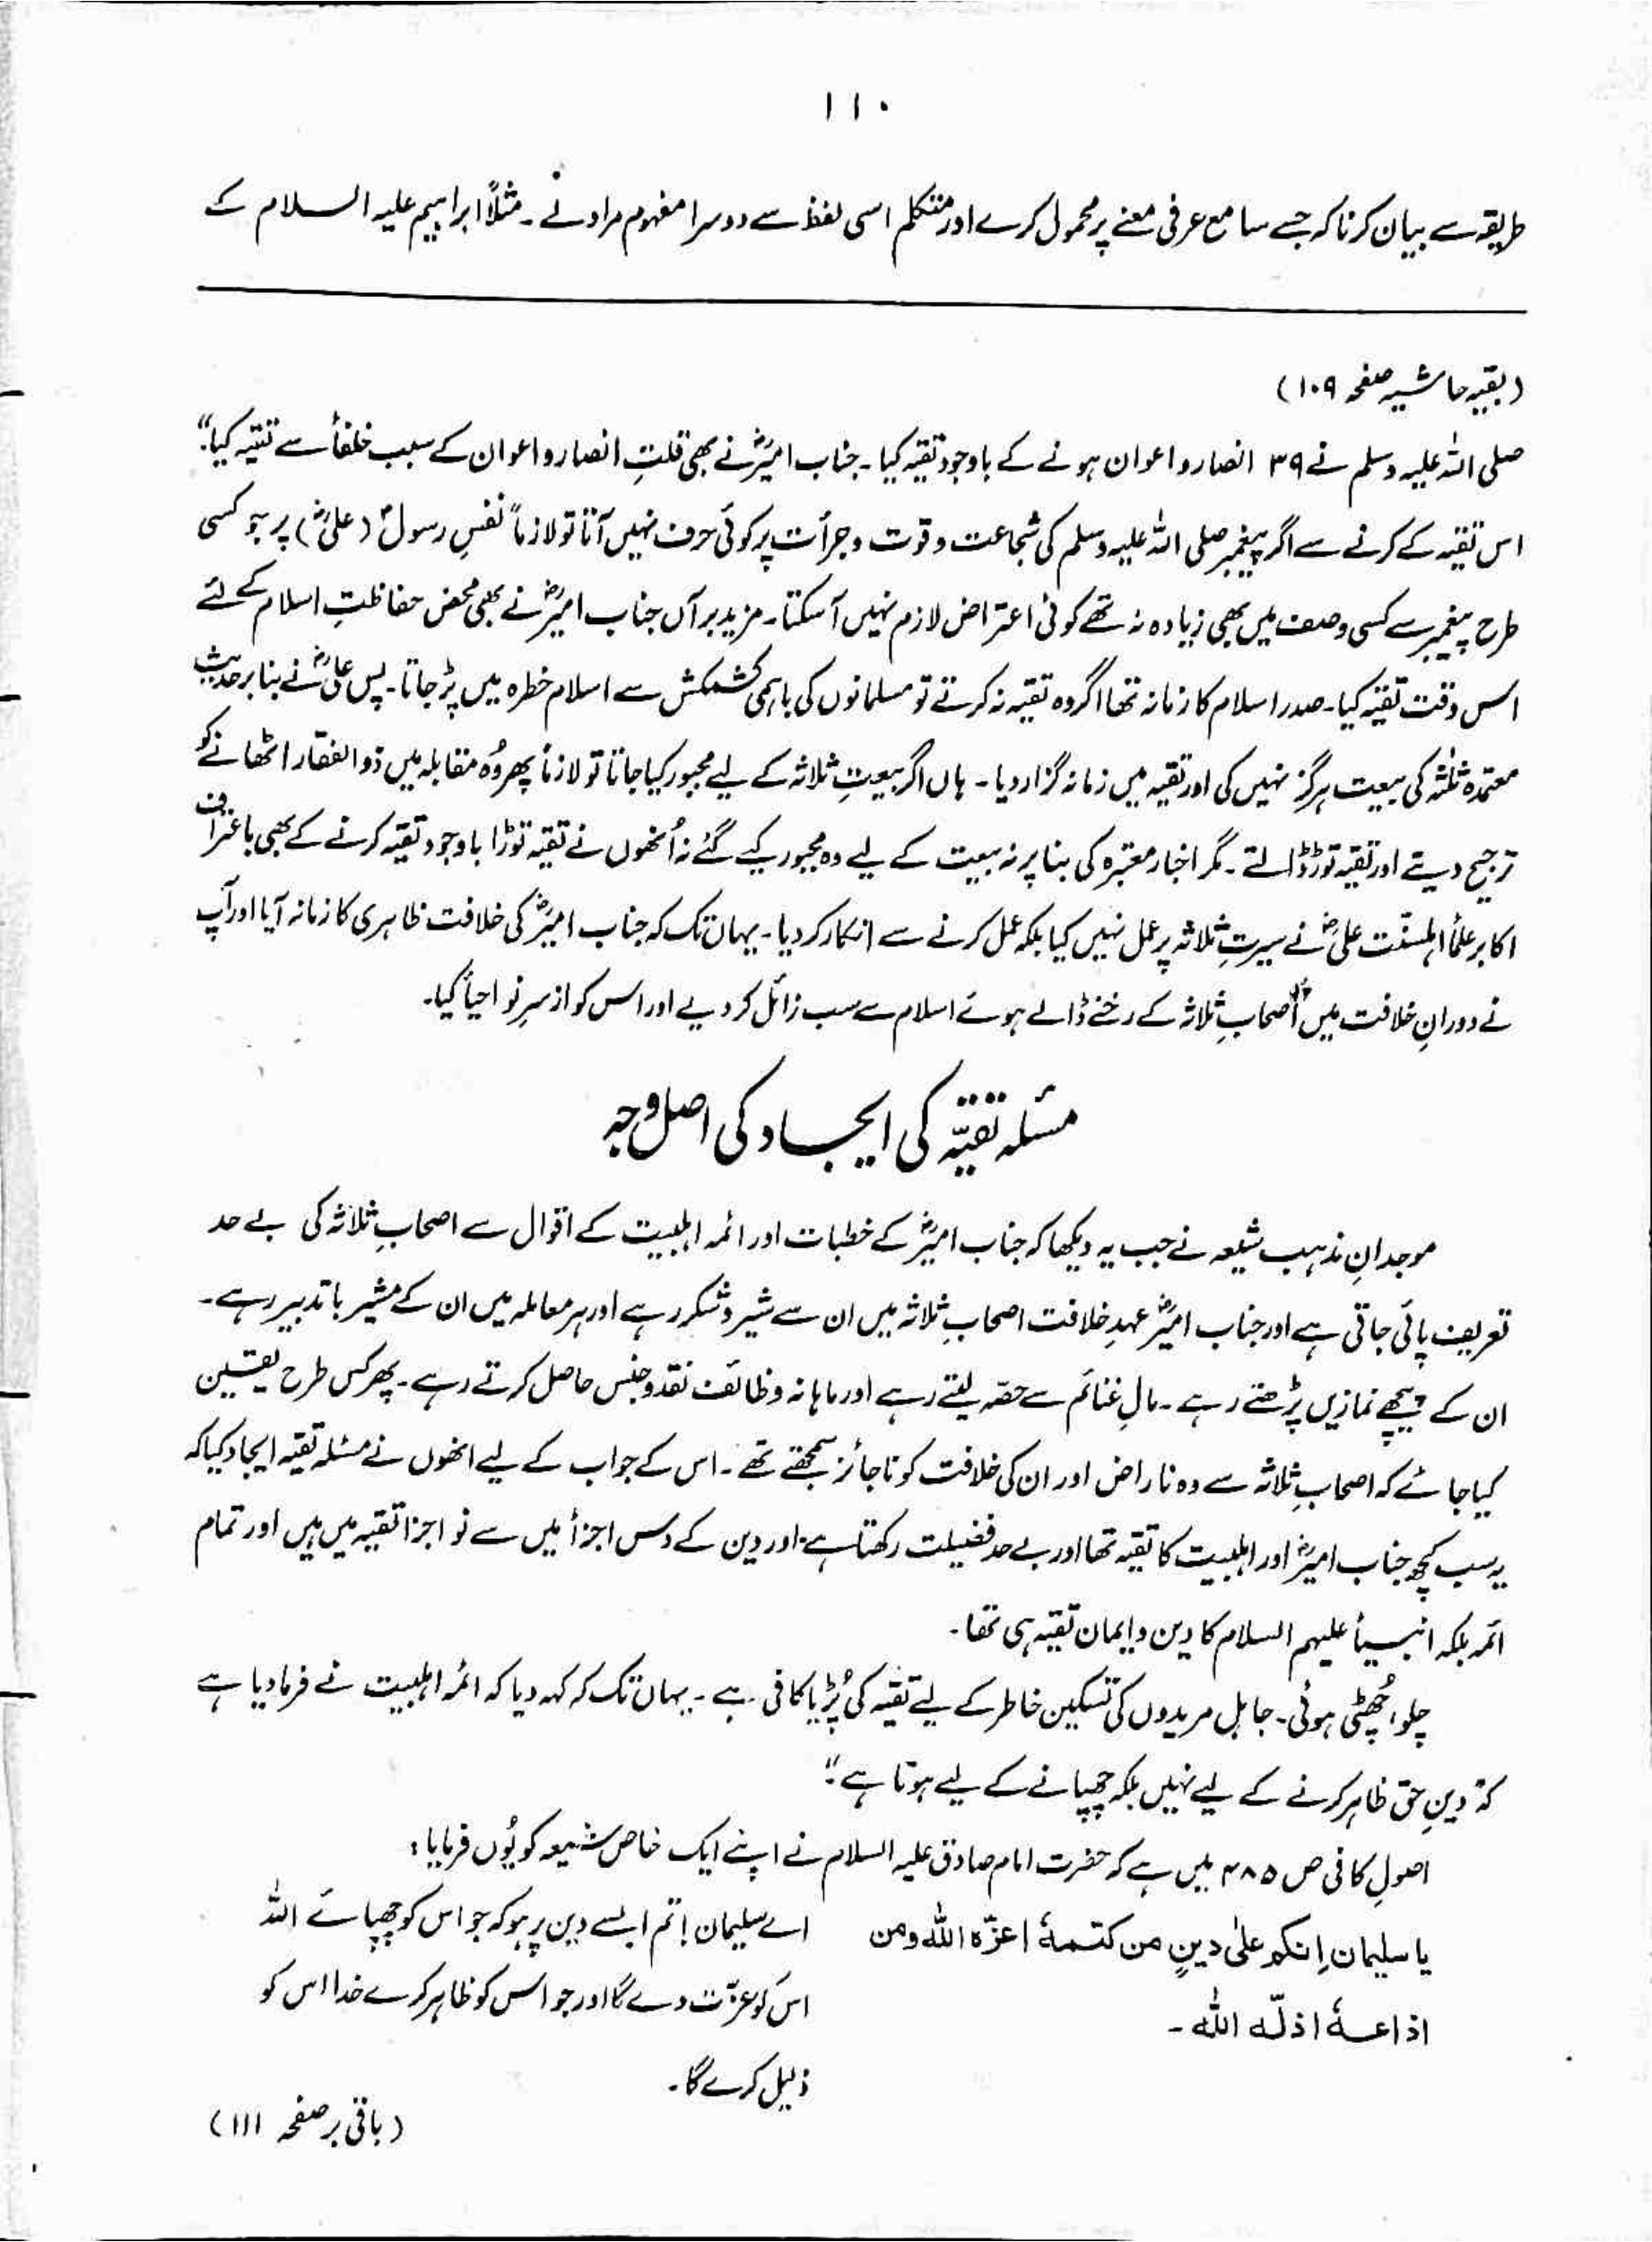 ۱۱۰
طریقہ سے بیان کرنا کہ جسے سامع عرفی معنے پر محمول کرے اور متکلم اسی لفظ سے دوسرا مفہوم مراد لے ۔ مثلاً ابراہیم علیہ السلام کے
(بقیہ حاشیہ صفحہ ۱۰۹)
صلی اللہ علیہ وسلم نے ۳۹ انصار و اعوان ہونے کے باوجود تقیہ کیا ۔ جناب امیرؓ نے بھی قلتِ انصار و اعوان کے سبب خلفأ سے تقیہ کیا"
اس تقیہ کے کرنے سے اگر پیغمبر صلی اللہ علیہ وسلم کی شجاعت و قوت و جرأت پر کوئی حرف نہیں آتا تو لازماً نفسِ رسولؐ (علیؓ) پر جو کسی
طرح پیغمبر سے کسی وصف میں بھی زیادہ نہ تھے کوئی اعتراض لازم نہیں آسکتا ۔ مزید برآں جناب امیرؓ نے بھی محض حفاظتِ اسلام کے لئے
اس وقت تقیہ کیا ۔ صدر اسلام کا زمانہ تھا اگر وہ تقیہ نہ کرتے تو مسلمانوں کی باہمی کشمکش سے اسلام خطرہ میں پڑ جاتا ۔ پس علیؓ نے بنا بر حدیث
معتمدہ ثلٰثہ کی بیعت ہرگز نہیں کی اور تقیہ میں زمانہ گزار دیا ۔ ہاں اگر بیعتِ ثلاثہ کے لیے مجبور کیا جاتا تو لازماً پھر وُہ مقابلہ میں ذوالفقار اٹھانے کو
ترجیح دیتے اور تقیہ توڑ ڈالتے ۔ مگر اخبار معتبرہ کی بنا پر نہ بیعت کے لیے وہ مجبور کیے گئے نہ اُنھوں نے تقیہ توڑا باوجود تقیّہ کرنے کے بھی باعتراف
اکابر علمأ اہلسنّت علیؓ نے سیرتِ ثلاثہ پر عمل نہیں کیا بلکہ عمل کرنے سے انکار کردیا ۔ یہاں تک کہ جناب امیرؓ کی خلافت ظاہری کا زمانہ آیا اور آپ
نے دورانِ خلافت میں اصحابِ ثلاثہ کے رخنے ڈالے ہوئے اسلام سے سب زائل کردیے اور اس کو از سرِ نو احیأ کیا۔
مسئلہ تقیّہ کی ایجاد کی اصل وجہ
موجدانِ مذہب شیعہ نے جب یہ دیکھا کہ جناب امیرؓ کے خطبات اور ائمہ اہلبیت کے اقوال سے اصحابِ ثلاثہ کی بے حد
تعریف پائی جاتی ہے اور جناب امیرؓ عہدِ خلافت اصحابِ ثلاثہ میں ان سے شیر و شکر رہے اور ہر معاملہ میں ان کے مشیر باتدبیر رہے ۔
ان کے پیچھے نمازیں پڑھتے رہے ۔ مالِ غنائم سے حصّہ لیتے رہے اور ماہانہ وظائف نقد و جنس حاصل کرتے رہے ۔ پھر کس طرح یقین
کیا جائے کہ اصحابِ ثلاثہ سے وہ ناراض اور ان کی خلافت کو ناجائز سمجھتے تھے ۔ اس کے جواب کے لیے انھوں نے مسئلہ تقیہ ایجاد کیا کہ
یہ سب کچھ جناب امیرؓ اور اہلبیت کا تقیہ تھا اور بے حد فضیلت رکھتا ہے ۔ اور دین کے دس اجزأ میں سے نو اجزا تقیہ میں ہیں اور تمام
ائمہ بلکہ انبیأ علیہم السلام کا دین و ایمان تقیہ ہی تھا ۔
چلو، چُھٹی ہوئی ۔ جاہل مریدوں کی تسکین خاطر کے لیے تقیّہ کی پُڑیا کافی ہے ۔ یہاں تک کہ کہہ دیا کہ ائمہ اہلبیت نے فرما دیا ہے
کہ "دینِ حق ظاہر کرنے کے لیے نہیں بلکہ چھپانے کے لیے ہوتا ہے"۔
اصولِ کافی ص ۴۸۵ میں ہے کہ حضرت امام صادق علیہ السلام نے اپنے ایک خاص شیعہ کو یُوں فرمایا:
یا سلیمان اِنکم علیٰ دینٍ من کتمہٗ اعزّہ اللہ ومن
اذاعہٗ اذلّہ اللہ ۔
اے سلیمان! تم ایسے دین پر ہو کہ جو اس کو چھپائے اللہ
اس کو عزّت دے گا اور جو اس کو ظاہر کرے خدا اس کو
ذلیل کرے گا ۔
(باقی بر صفحہ ۱۱۱)